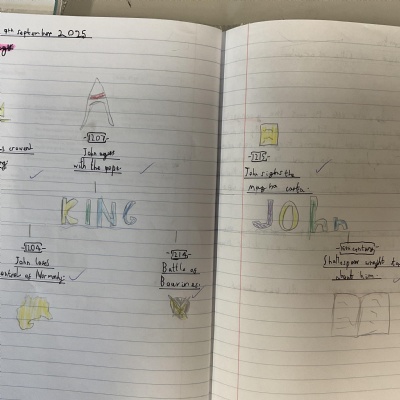 9th september 2025
1207
John agues
with the pope
1215
John sighs the
magna carta.
KING JOhn
1204
John loses
control of Normandy.
1214
Battle of
Bouvines.
16th century
Shakespear wright
about him.